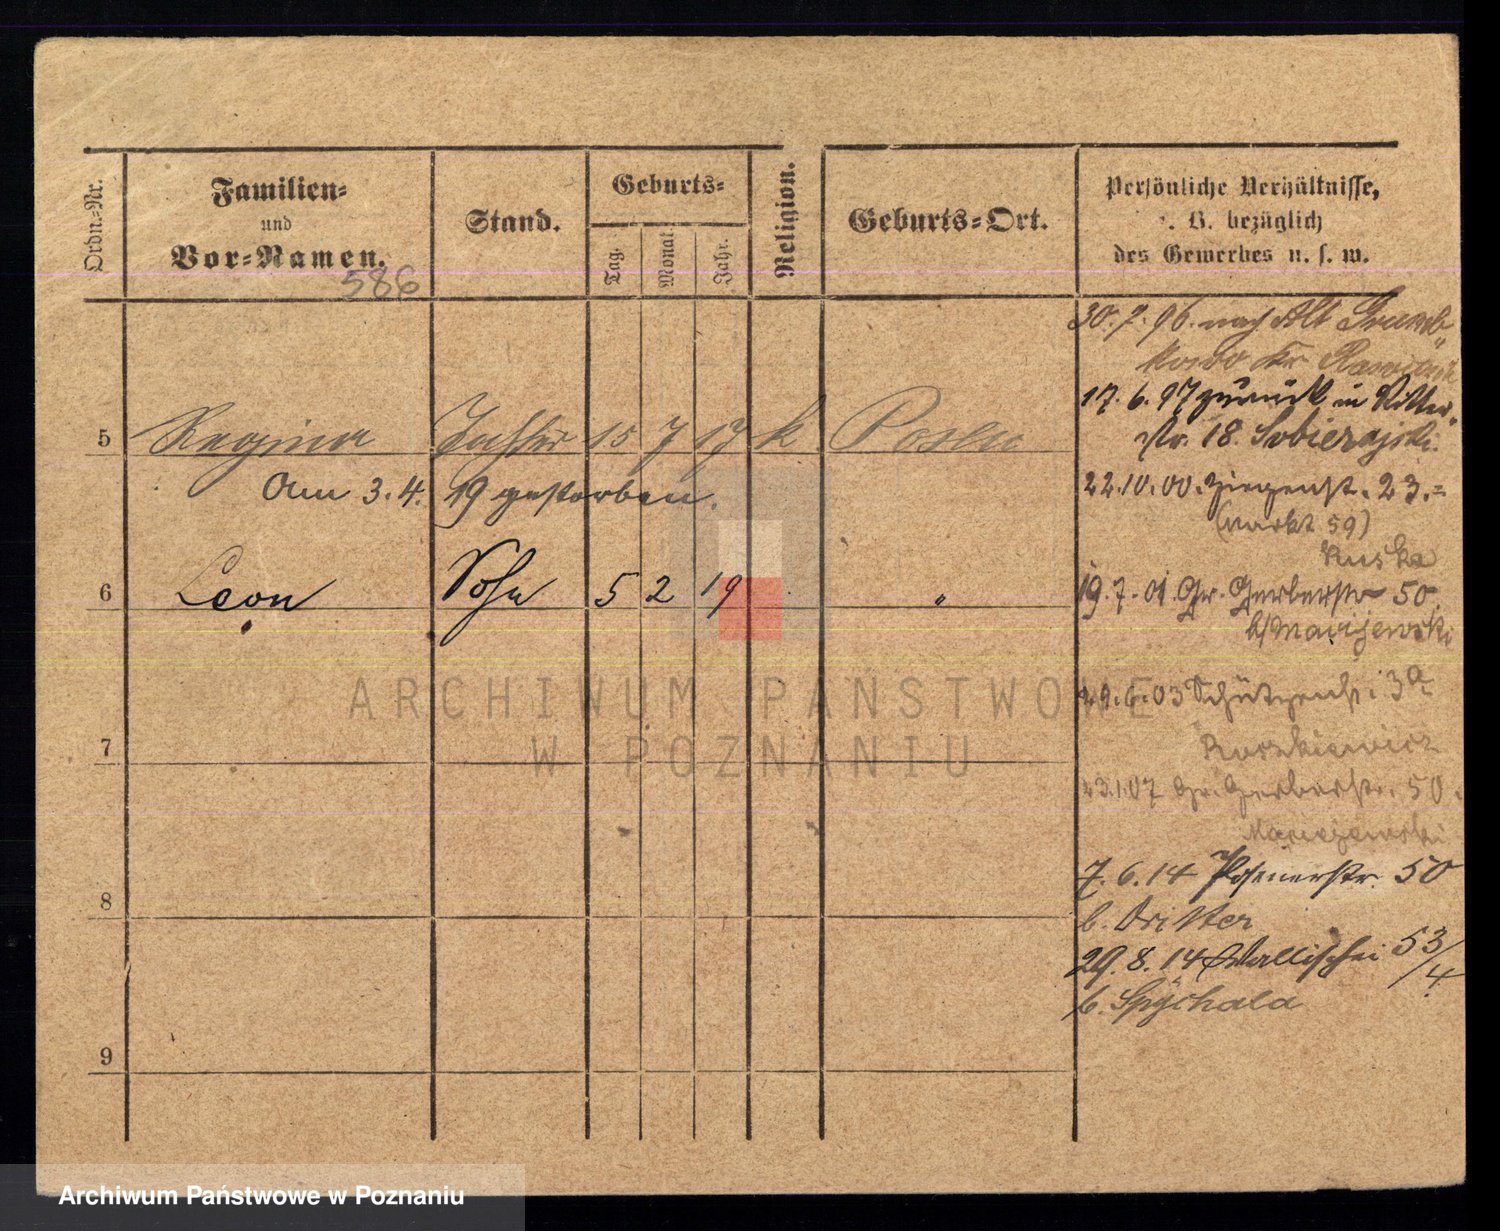 Ordn.-Nr.
Familien-
und
Vor-Namen.
586
Stand.
Geburts-
Tag.
Monat.
Jahr.
Religion.
Geburts-Ort.
Persönliche Verhältnisse,
z. B. bezüglich
des Gewerbes u. s. w.
30.7.96. nach Alt
Kr
17.6.97 zurück in Ritter
str. 18. Sobierajski.
5 Regina Tochter 15 7 17 k Posen
Am 3.4. 19 gestorben.
22.10.00. Ziegenst. 23.=
(Markt 59)
Kuska
6 Leon Sohn 5 2 19 "
19.7.01. Gr. Gerberstr 50
b/Maciejewski
29.6.03 Schützenstr. 3a
7
Roszkiewicz
23.1.07 Gr. Gerberstr. 50.
Maciejewski
7.6.14 Posenerstr. 50
8
b. Dritter
29.8.14 Wallischei 53/4
b. Spychala
9
ARCHIWUM PAŃSTWOWE
W POZNANIU
Archiwum Państwowe w Poznaniu